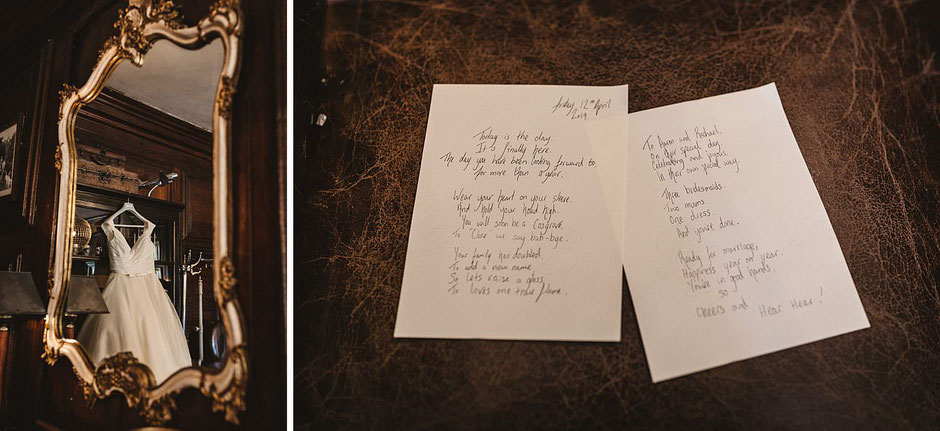 Friday 12th April
2019
Today is the day.
It is finally here.
The day you have been looking forward to
for more than a year.
Wear your heart on your sleeve.
And hold your head high.
You will soon be a Cosgrove
To Close we say buh-bye.
Your family has doubled.
To add a new name,
So lets raise a glass
To loves one true flame.
To and Rachael,
On your special day.
Celebrating and
In their own special way.
Three bridesmaids.
Two mums.
One dress.
And you're done.
Ready for marriage,
Happiness year on year
You're in good hands.
So
Cheers and Hear Hear!